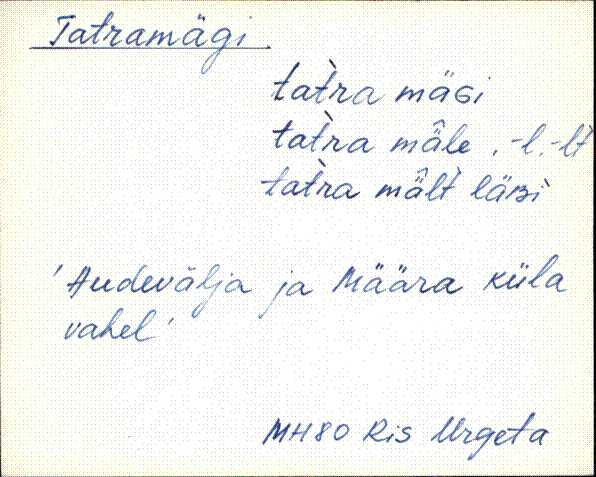 Tatramägi.
tat̀ra mäGi
tat̀ra mäle, -l, -lt̀
tat̀ra mält̀ läBì
'Audevälja ja Määra küla
vahel'
MH80 Ris Urgeta